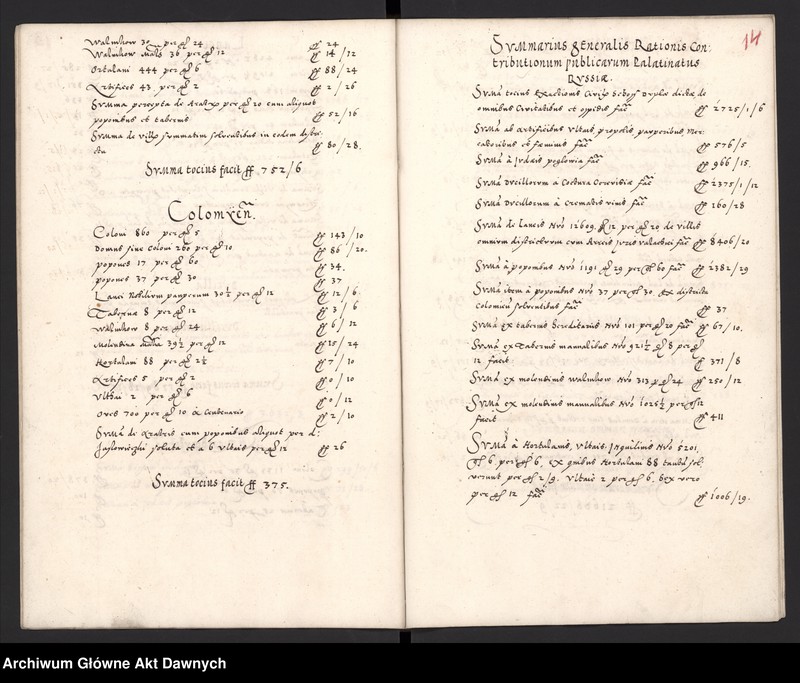 Walnikow 30 per gl 24 ff 24
Walnikow Mali 36 per gl 12 ff 14/12
Ortulani 444 per gl 6 ff 88/24
Artifices 43 per gl 2 ff 2/26
Summa percepta de Aratro per gl 20 cum aliquot
poponibus et tabernis ff 52/16
Summa de villis summatim solventibus in eodem distri-
ctu ff 80/28.
Summa tocius facit ff 752/6
Colomÿen.
Coloni 860 per gl 5 ff 143/10
Domus sine Coloni 260 per gl 10 ff 86/20.
popones 17 per gl 60 ff 34.
popones 37 per gl 30 ff 37
Lanei Nobilium pauperum 30½ per gl 12 ff 12/6.
Tabernæ 8 per gl 12 ff 3/6
Walnikow 8 per gl 24 ff 6/12
Molendina 39½ per gl 12 ff 15/24
Hortulani 88 per gl 2½ ff 7/10
Artifices 5 per gl 2 ff 0/10
Vltaii 2 per gl 6 ff 0/12
Oves 700 per gl 10 a Centenario ff 2/10
Summa de Aratris cum poponibus aliquot per d:
Jaslowieczki soluta et a 6 Vltaiis per gl 12 ff 26
Summa tocius facit ff 375.
14
Summarius generalis Rationis Con:
tributionum publicarum Palatinatus
Russiæ.
Summa tocius Exactionis duplæ dictæ de
omnibus Civitatibus et oppidis facit ff 2725/1/6
Summa ab artificibus Vltaiis propolis, pauperibus, Mer-
catoribus et facit ff 576/5
Summa a Judæis poglowia facit ff 966/15.
Summa Ducillorum a Coctura Cerevisiæ facit ff 2375/1/12
Summa Ducillorum a Crematis vinis facit ff 160/28
Summa de Laneis Nro 12609. gl 12 per gl 20 de villis
omnium districtorum cum Areis Juris valachici facit ff 8406/20
Summa a poponibus Nro 1191 gl 29 per gl 60 facit ff 2382/29
Summa item a poponibus Nro 37 per gl 30. ex districtu
Colomien solventibus facit ff 37
Summa ex tabernis hereditariis Nro 101 per gl 20 facit ff 67/10.
Summa ex Tabernis annalibus Nro 921½ gl 8 per gl
12 facit ff 371/8
Summa ex molendinis Walnikow Nro 313 p gl 24 ff 250/12
Summa ex molendinis annualibus Nro 1025½ per gl 12
facit ff 411
Summa a Hortulanis, Vltaiis, Inquilinis Nro 5201.
gl 6 per gl 6, ex quibus Hortulani 88 tantum sol-
verunt per gl 2/9. Vltaii 2 per gl 6. Sex vero
per gl 12 facit ff 1006/19.
Archiwum Główne Akt Dawnych